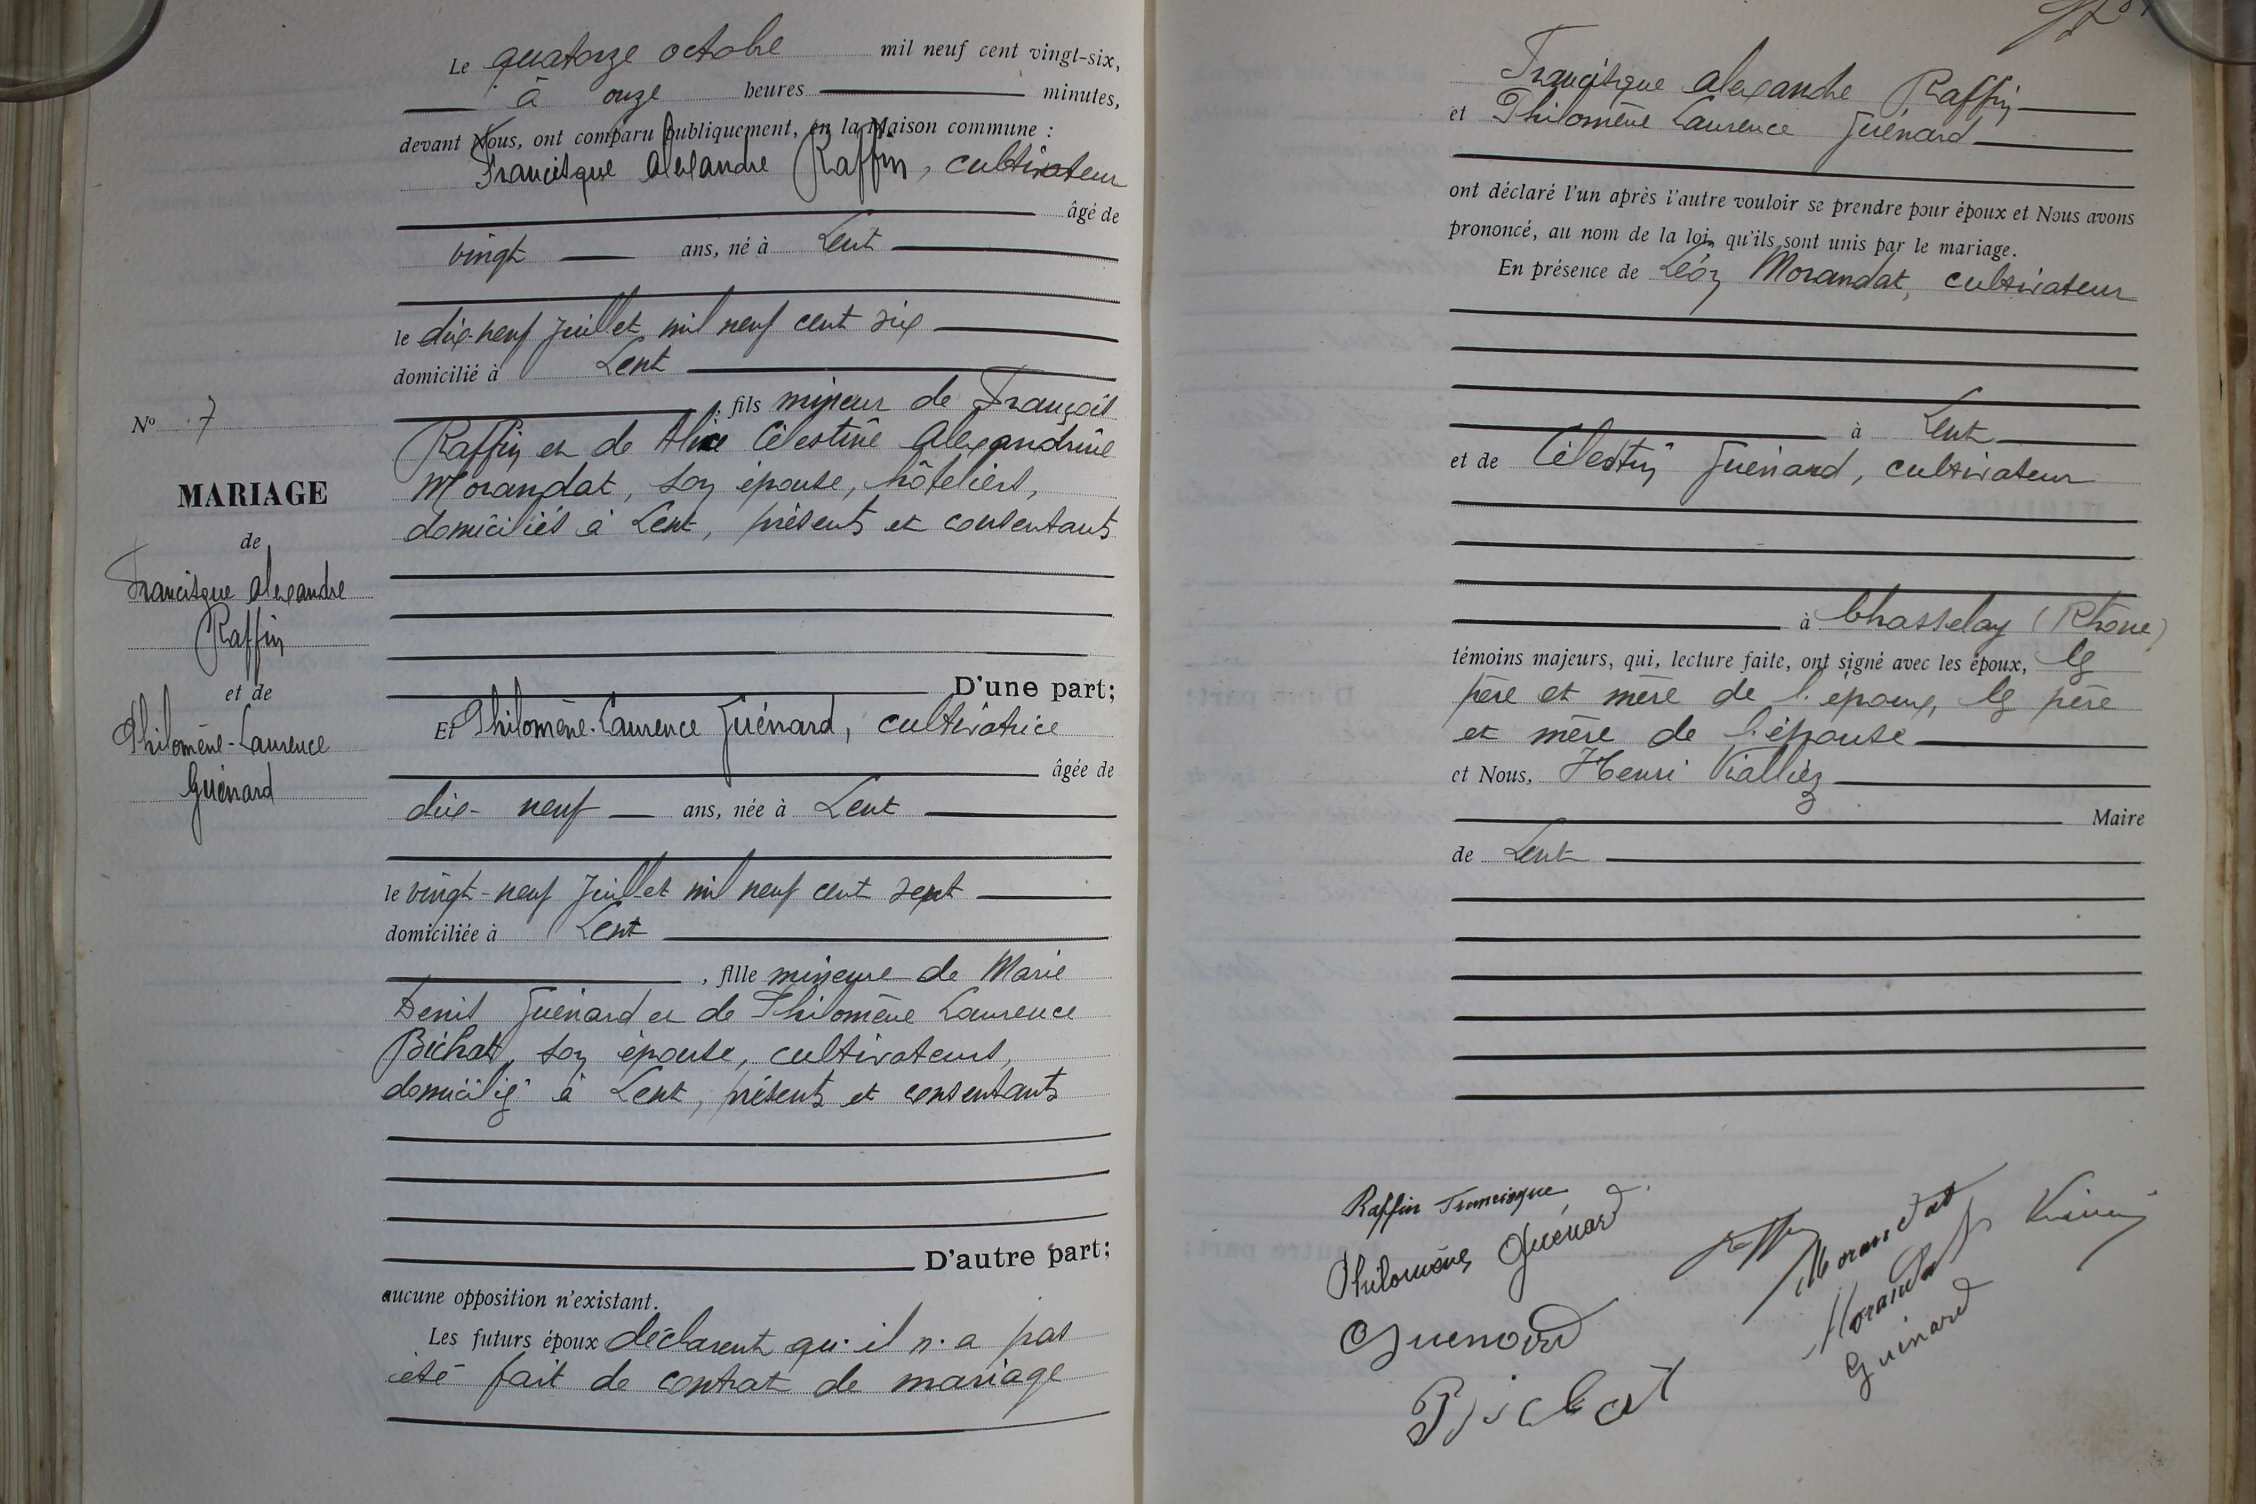 Le quatorze octobre mil neuf cent vingt-six,
à onze heures minutes,
devant Nous, ont comparu publiquement, en la Maison commune :
Francisque Alexandre Raffin, cultivateur
âgé de
vingt ans, né à Lent
le dix-neuf juillet mil neuf cent six
domicilié à Lent
, fils mineur de François
Raffin et de Alice Célestine Alexandrine
Morandat, son épouse, hôteliers,
domiciliés à Lent, présents et consentants
D'une part;
Et Philomène-Laurence Guénard, cultivatrice
âgée de
dix-neuf ans, née à Lent
le vingt-neuf juillet mil neuf cent sept
domiciliée à Lent
, fille mineure de Marie
Denis Guénard et de Philomène Laurence
Bichat, son épouse, cultivateurs,
domiciliés à Lent, présents et consentants
D'autre part;
aucune opposition n'existant.
Les futurs époux déclarent qu'il n'a pas
été fait de contrat de mariage
No 7
MARIAGE
de
Francisque Alexandre
Raffin
et de
Philomène-Laurence
Guénard
Francisque Alexandre Raffin
et Philomène Laurence Guénard
ont déclaré l'un après l'autre vouloir se prendre pour époux et Nous avons
prononcé, au nom de la loi, qu'ils sont unis par le mariage.
En présence de Léon Morandat, cultivateur
à Lent
et de Célestin Guénard, cultivateur
à Chasselay (Rhône)
témoins majeurs, qui, lecture faite, ont signé avec les époux, les
père et mère de l'époux, les père
et mère de l'épouse
et Nous, Henri
Maire
de Lent
Raffin Francisque
Philomène Guénard
Raffin
Morandat
Morandat
Guénard
Guenard
Bichat